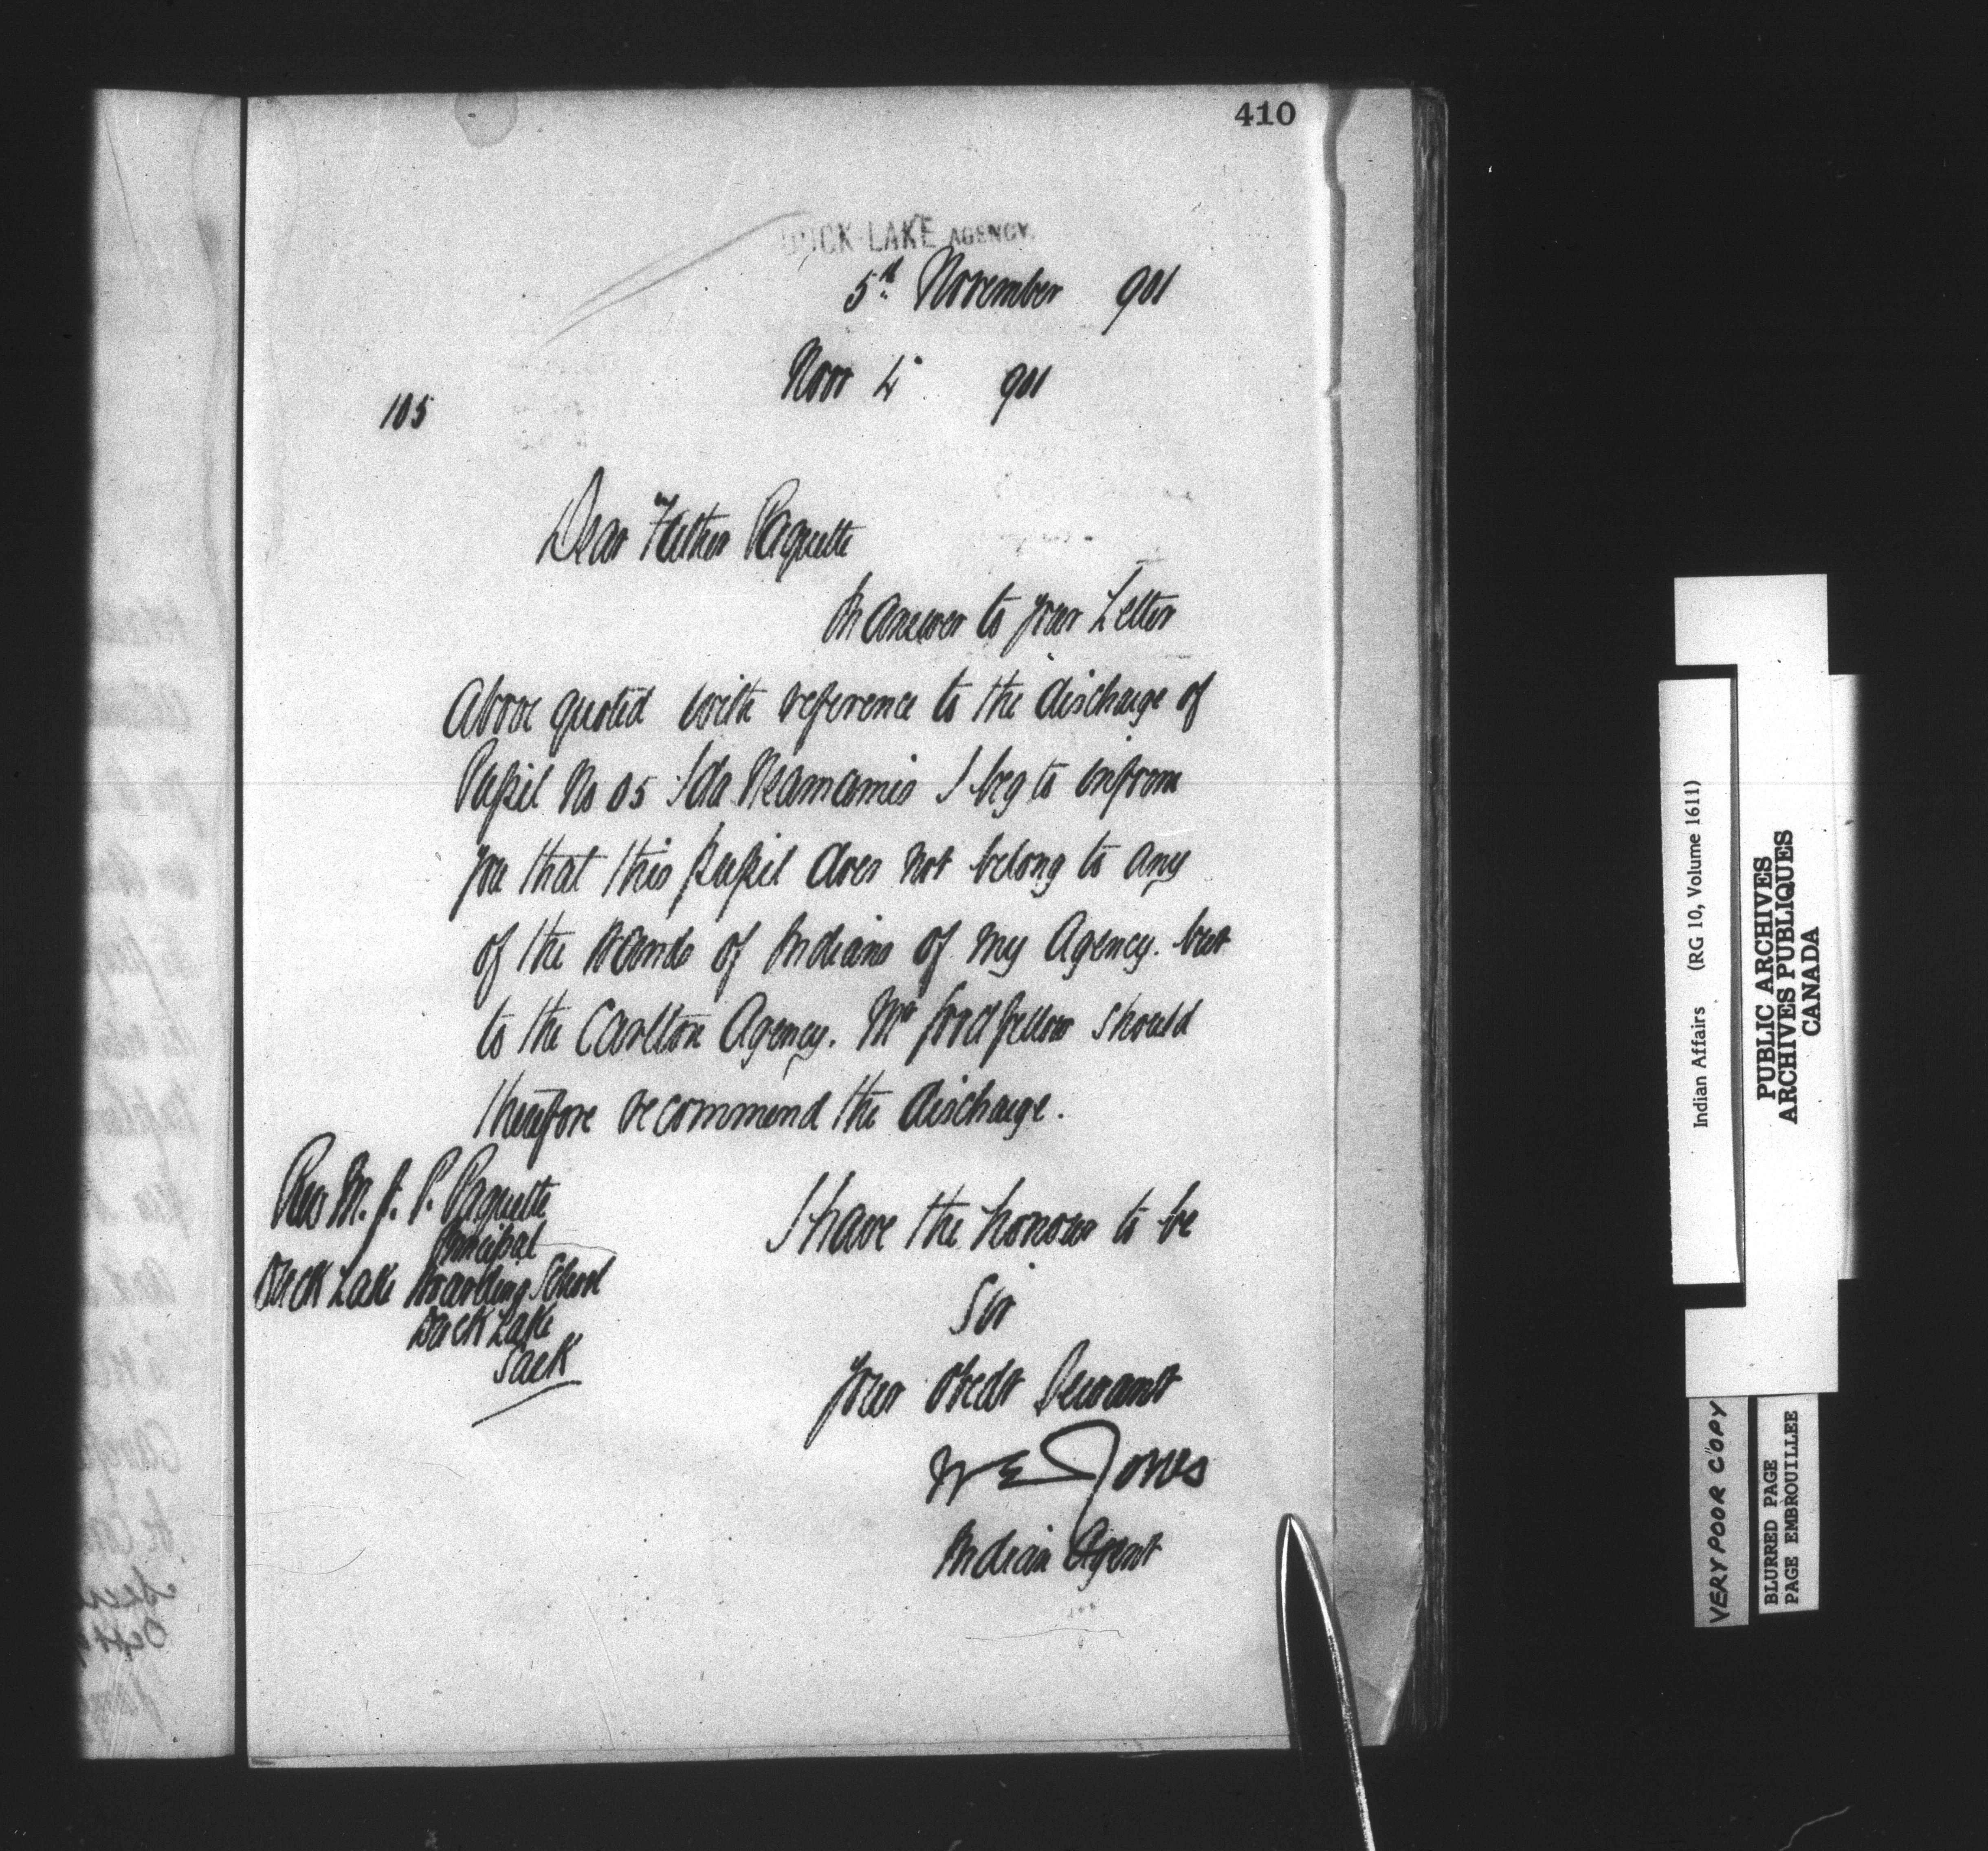 410
DUCK LAKE AGENCY.
5th November 901
Novr 4 901
105
Dear Father Paquette
In answer to your Letter
Above quoted with reference to the discharge of
Pupil No 05 Ida I beg to inform
you that this pupil does not belong to any
of the Bands of Indians of my Agency. but
to the Carlton Agency. Mr Goodfellow should
therefore recommend the discharge.
Rev M. J. P. Paquette
Principal
Duck Lake Boarding School
Duck Lake
Sask
I have the honour to be
Sir
Your Obedt Servant
W E Jones
Indian Agent
Indian Affairs (RG 10, Volume 1611)
PUBLIC ARCHIVES
ARCHIVES PUBLIQUES
CANADA
VERY POOR COPY
BLURRED PAGE
PAGE EMBROUILLEE